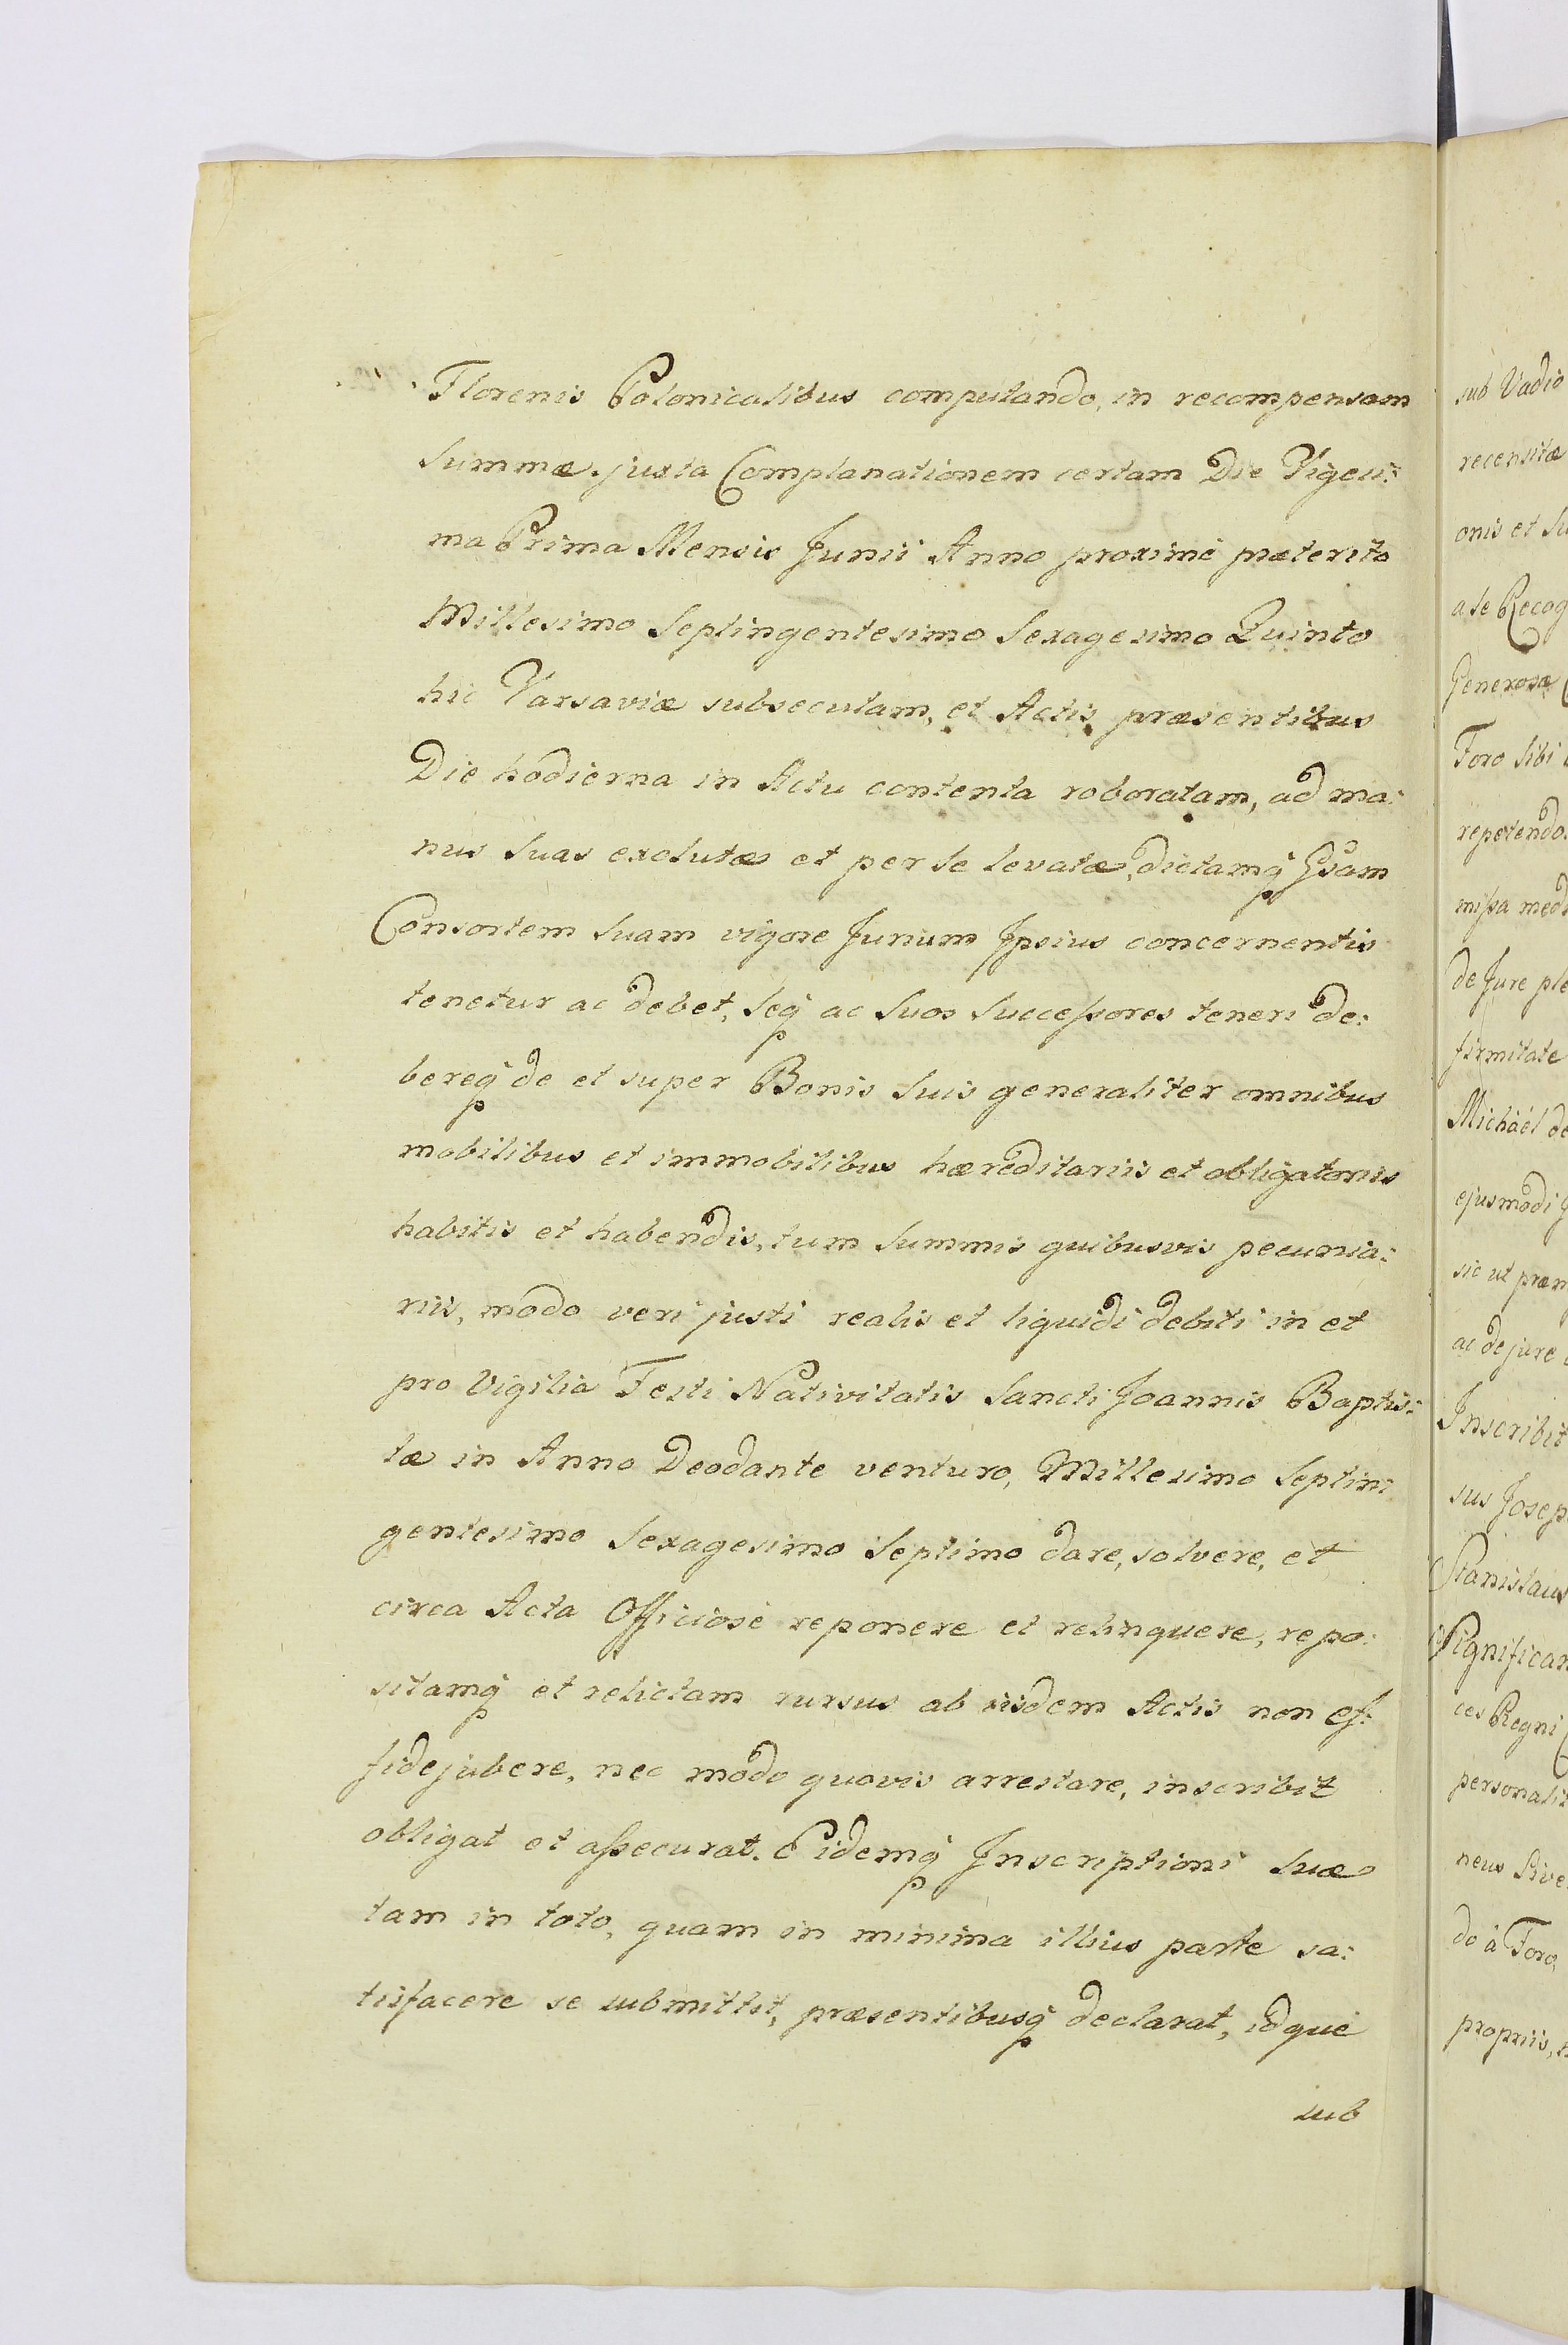 Florenis Polonicalibus computando, in recompensam
Summæ juxta Complanationem certam Die Vigesi:
ma Prima Mensis Junii Anno proximè præterito
Millesimo Septingentesimo Sexagesimo Quinto
hic Varsaviæ subsecutam, et Actis præsentibus
Die hodierna in Actu contenta roboratam, ad ma:
nus suas exolutæ et per se levatæ, dictamq̃ Gsam
Consortem suam vigore Jurium Ipsius concernentis
tenetur ac debet, seq̃ ac suos Successores teneri de:
bereq̃ de et super Bonis suis generaliter omnibus
mobilibus et immobilibus hæreditariis et obligatoriis
habitis et habendis, tum Summis quibusvis pecunia:
riis, modo veri justi realis et liquidi debiti in et
pro Vigilia Festi Nativitatis Sancti Joannis Baptis:
tæ in Anno Deodante venturo, Millesimo Septin:
gentesimo Sexagesimo Septimo dare, solvere, et
circa Acta Officiosè reponere et relinquere, repo:
sitamq̃ et relictam rursus ab iisdem Actis non ef:
fidejubere, nec modo quovis arrestare, inscribit
obligat et assecurat. Eidemq̃ Inscriptioni suæ
tam in toto, quam in minima illius parte sa:
tisfacere se submittit, præsentibusq̃ declarat, idque
sub
sub Vadio
recensitæ
onis et Su
a se Recog
Generosæ
Foro sibi
repetendo
missa med
de Jure ple
firmitate
Michaël de
ejusmodi
sic ut præm
ac de jure
Inscribit
sus Josep
Stanislaus
Significan
ces Regni
personalit
neus Sive
do à Foro
propriis,